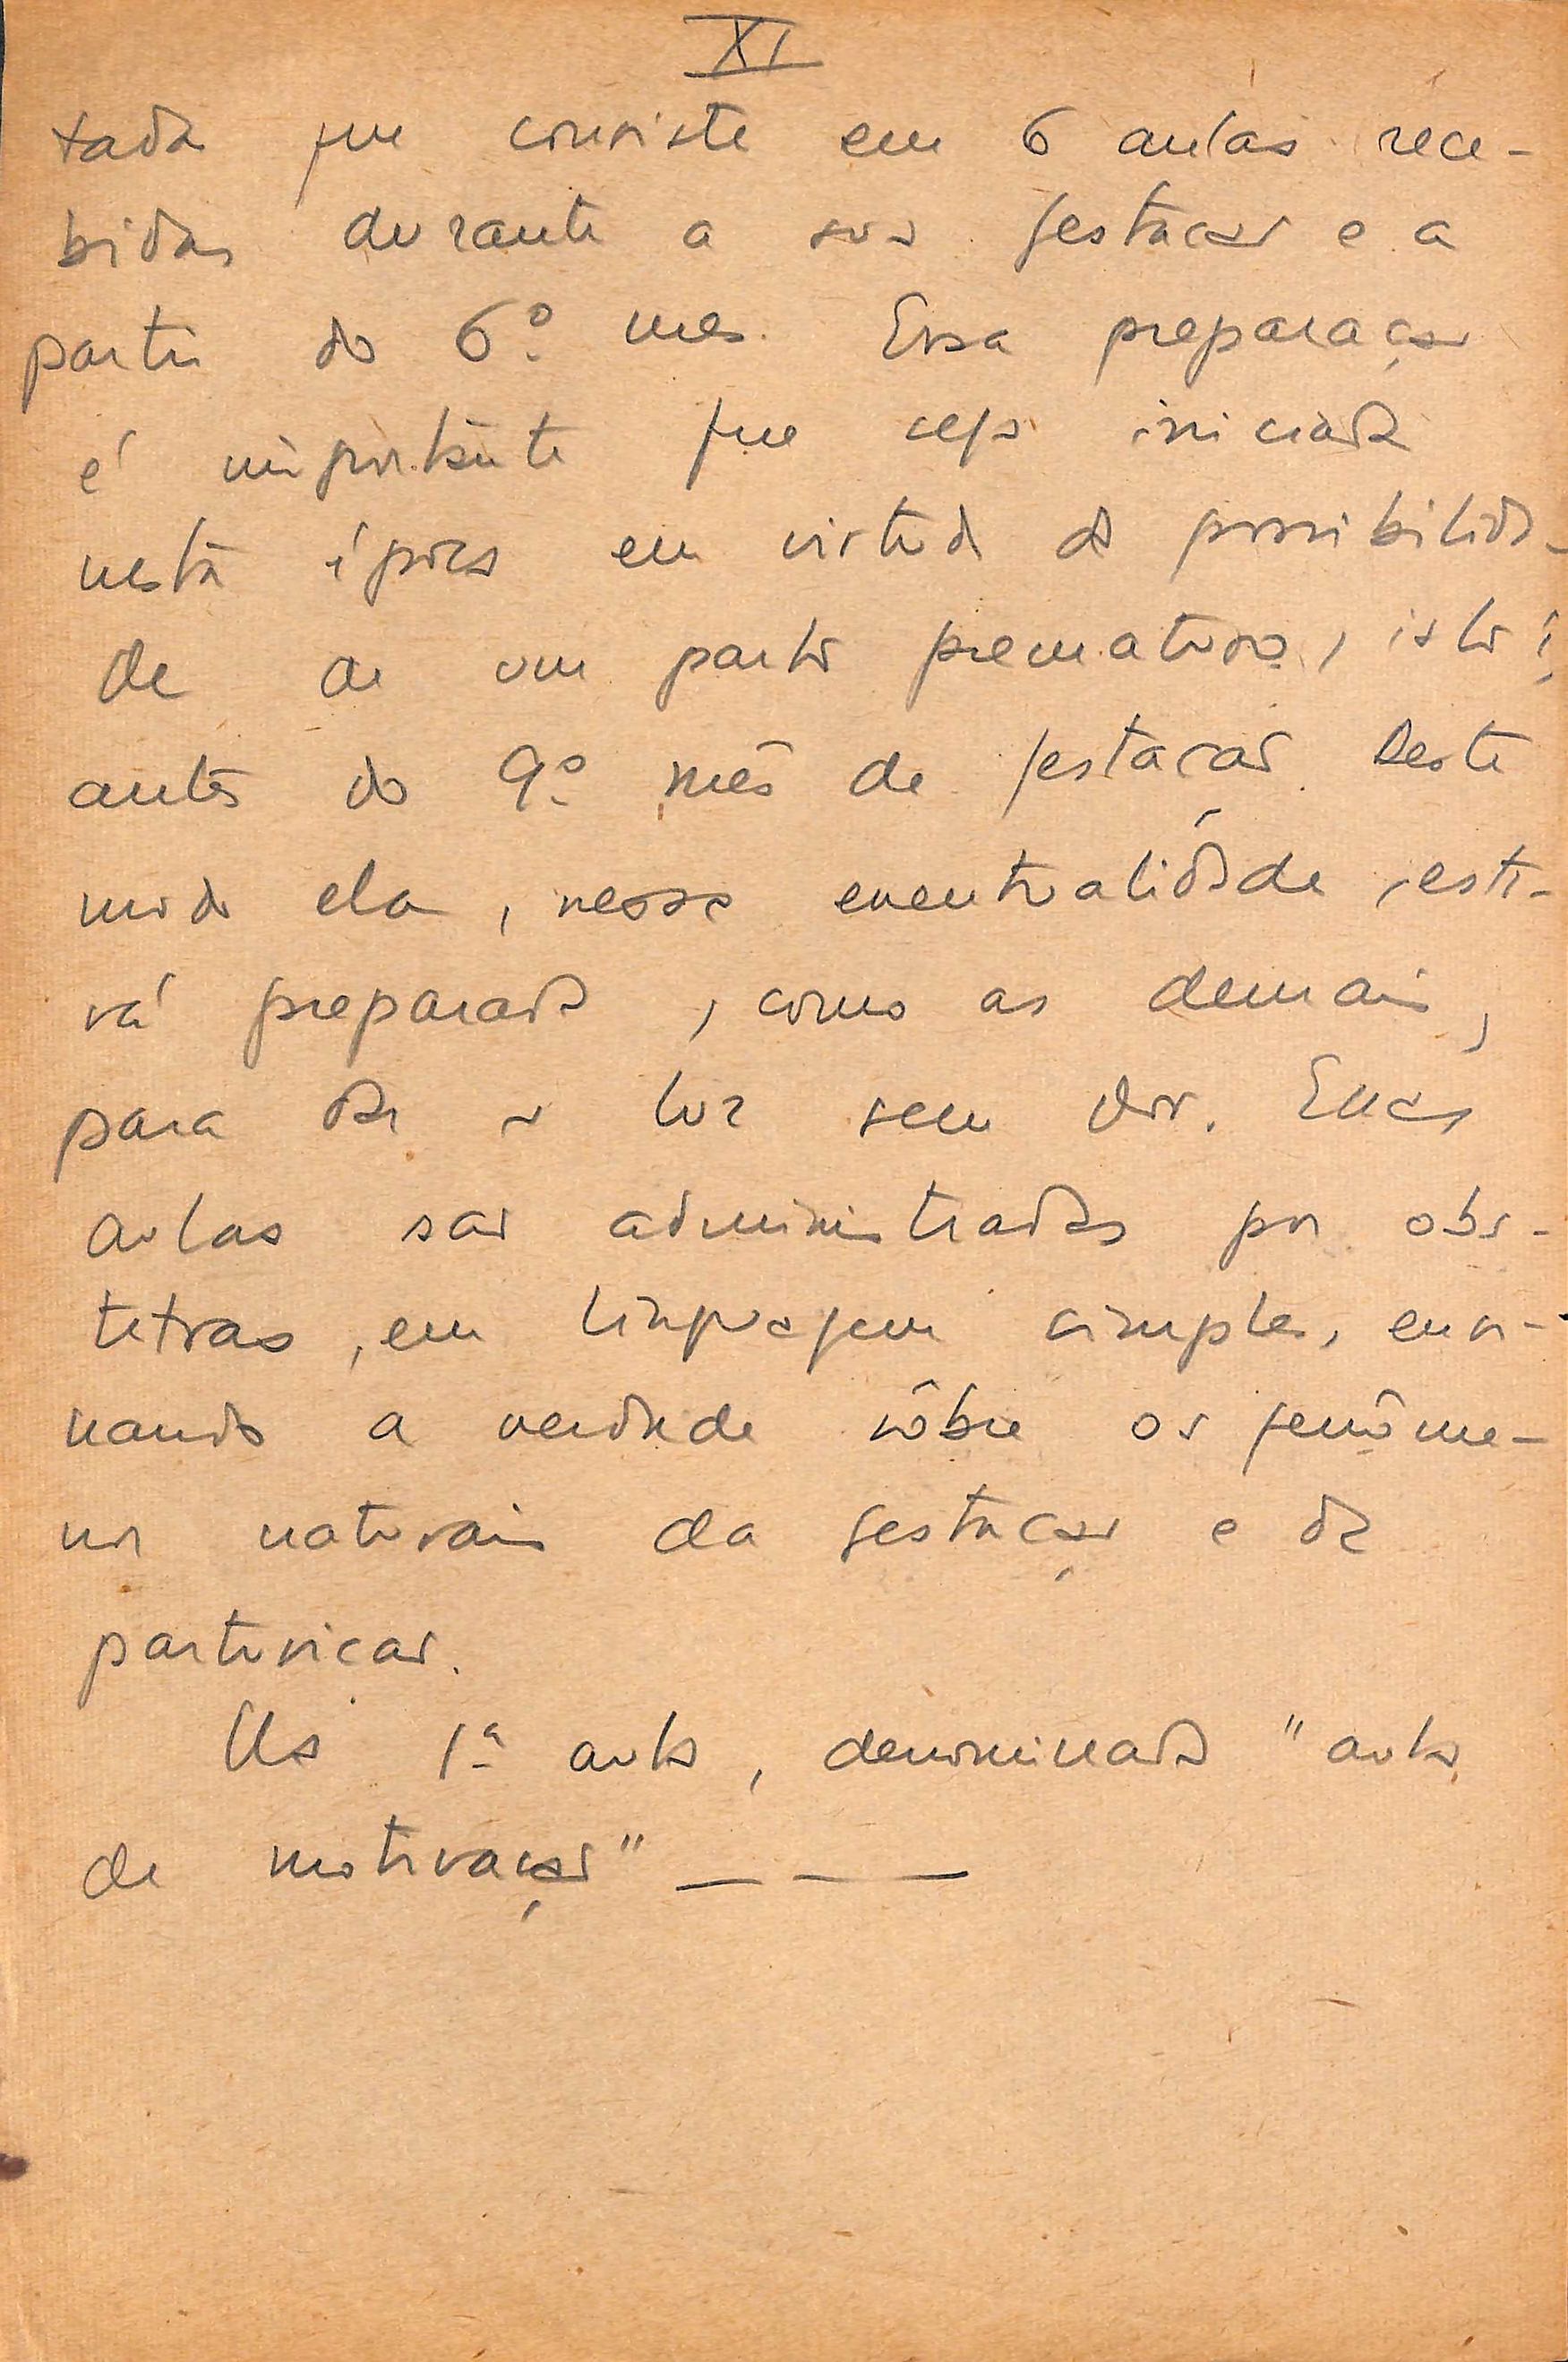 XI
tada que consiste em 6 aulas rece-
bidas durante a sua gestacão e a
partir do 6º mes. Essa preparação
é importante que seja iniciada
nesta época em virtude da possibilida-
de de um parto prematuro, isto é,
antes do 9º mês de gestação. Deste
modo ela, nessa eventualidade, esta-
rá preparada, como as demais,
para dar a luz sem dor. Essas
aulas são administradas por obs-
tetras, em linguagem simples, ensi-
nando a verdade sôbre os fenôme-
nos naturais da gestação e da
parturicão.
Na 1ª aula, denominada "aula
de motivação" — — —